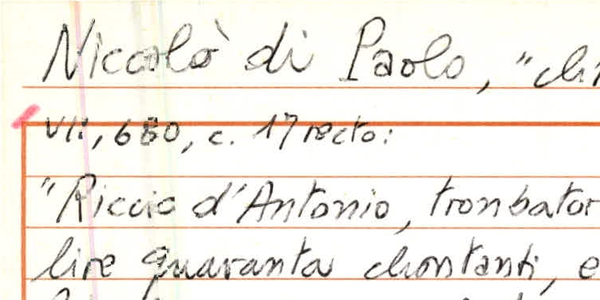 Niccolò di Paolo, "chi
VII, 680, c. 17 recto:
"Riccio d'Antonio, trombator
lire quaranta chontanti, e